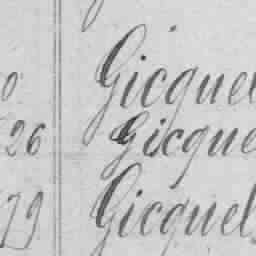 0 Gicquel
26 Gicque
79 Gicquel